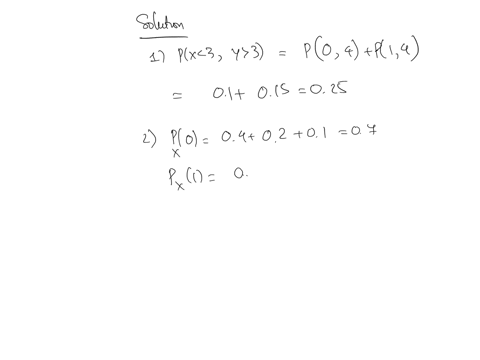 Solution
1) P(x<3, y>3) = P(0,4)+P(1,4)
= 0.1+ 0.15 = 0.25
2) P_X(0) = 0.4+ 0.2 + 0.1 = 0.7
P_X(1) = 0.